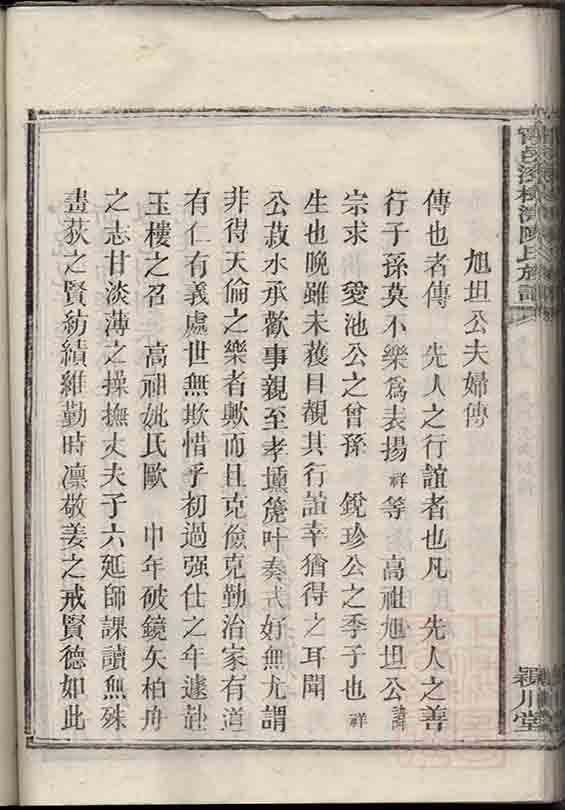 旭坦公夫婦傳
傳也者傳 先人之行誼者也凡 先人之善
行子孫莫不樂爲表揚祥等 高祖旭坦公諱
宗求 愛池公之曾孫 銳珍公之季子也祥
生也晚雖未獲目覩其行誼幸猶得之耳聞
公菽水承歡事親至孝壎篪叶奏式好無尤謂
非得天倫之樂者歟而且克儉克勤治家有道
有仁有義處世無欺惜乎初過强仕之年遽赴
玉樓之召 高祖妣氏歐 中年破鏡矢柏舟
之志甘淡薄之操撫丈夫子六延師課讀無殊
畫荻之賢紡績維勤時凛敬姜之戒賢德如此
陳氏族譜
潁川堂